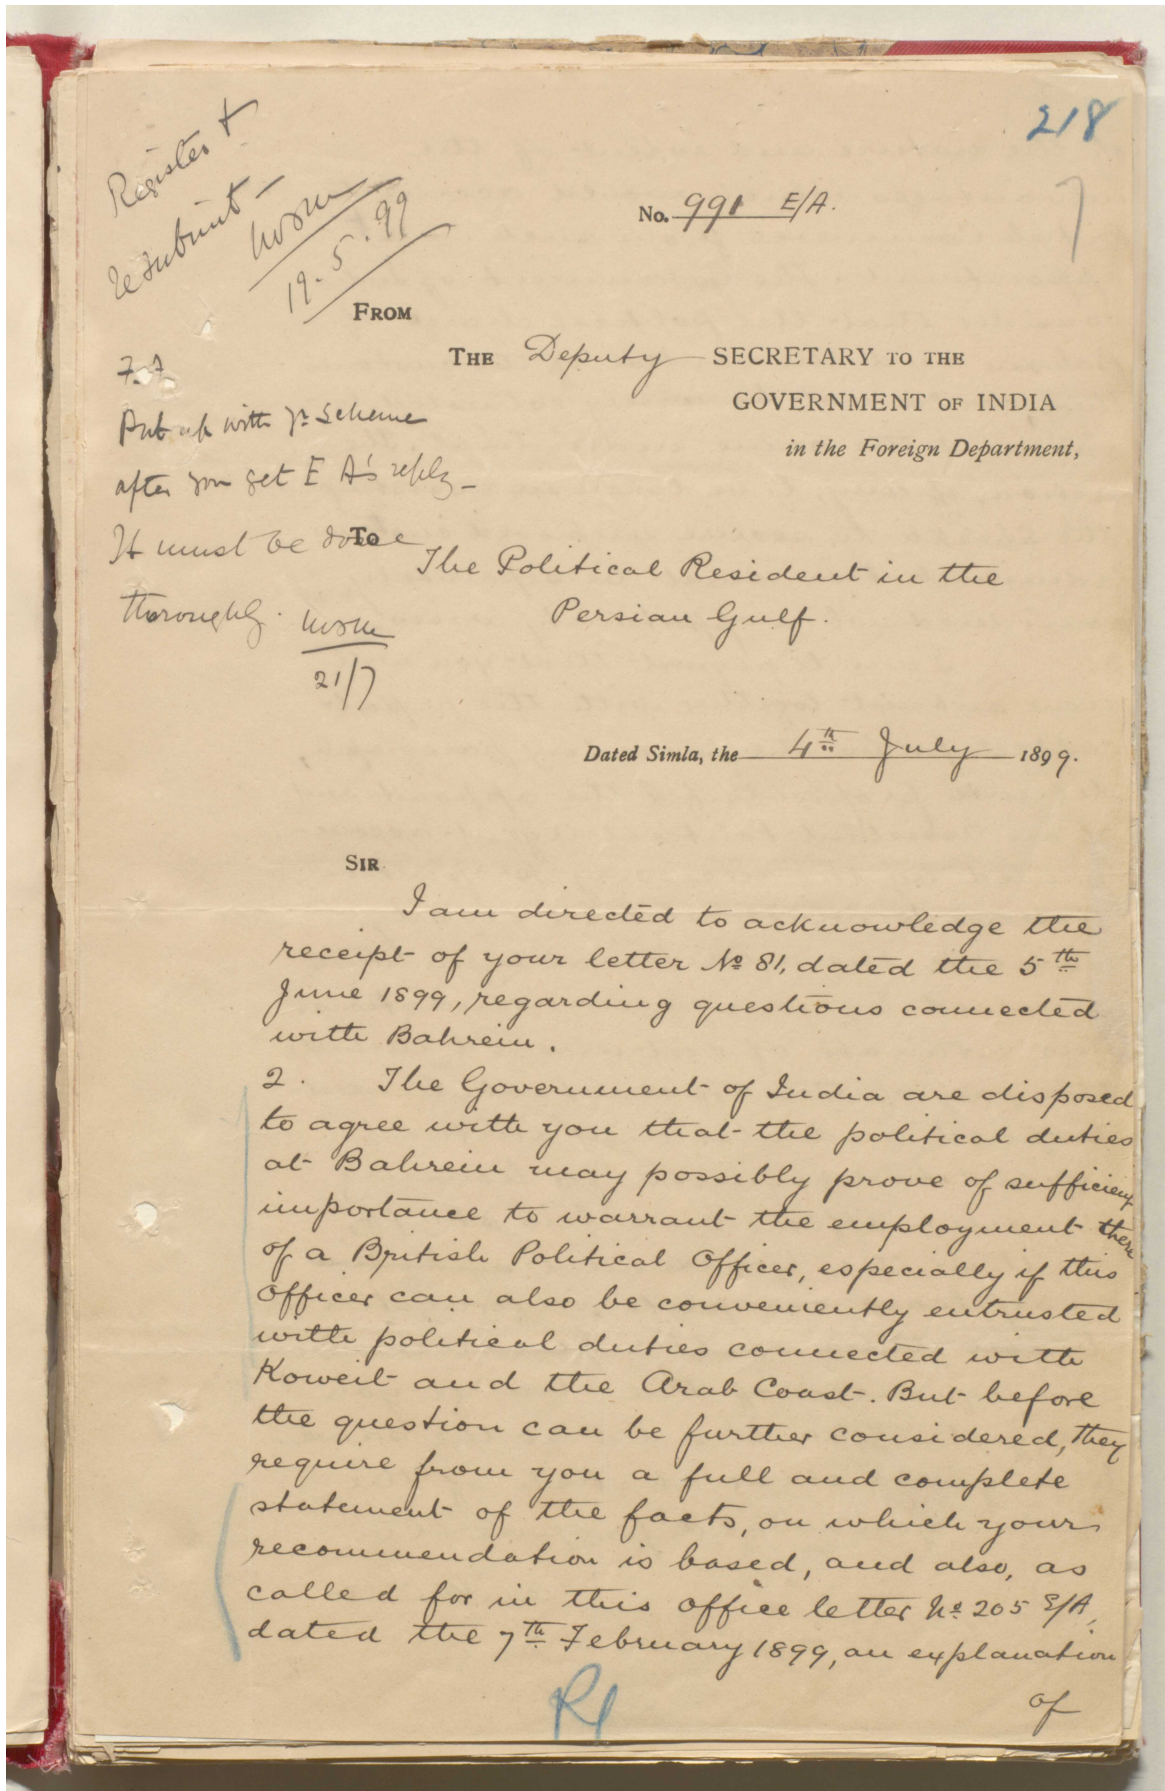 218
Register &
resubmit -
19.5.99
No. 991 E/A.
7
FROM
THE Deputy SECRETARY TO THE
GOVERNMENT OF INDIA
in the Foreign Department,
Put up with yr scheme
after you get E A's reply -
It must be done
thoroughly.
21/7
To
The Political Resident in the
Persian Gulf.
Dated Simla, the 4th July 1899.
SIR
I am directed to acknowledge the
receipt of your letter No 81, dated the 5th
June 1899, regarding questions connected
with Bahrein.
2. The Government of India are disposed
to agree with you that the political duties
at Bahrein may possibly prove of sufficient
importance to warrant the employment there
of a British Political Officer, especially if this
Officer can also be conveniently entrusted
with political duties connected with
Koweit and the Arab Coast. But before
the question can be further considered, they
require from you a full and complete
statement of the facts, on which your
recommendation is based, and also, as
called for in this office letter No 205 E/A,
dated the 7th February 1899, an explanation
of